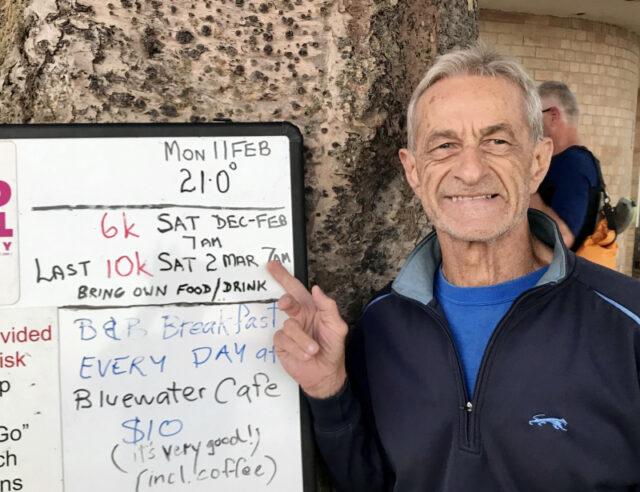 MON 11 FEB
21.0°
6k SAT DEC-FEB
7 AM
LAST 10k SAT 2 MAR 7AM
BRING OWN FOOD/DRINK
B&B Breakfast
EVERY DAY at
Bluewater Cafe
$10
(it's very good!)
(incl. coffee)
D
L
Y
vided
isk
p
Go"
ch
ns